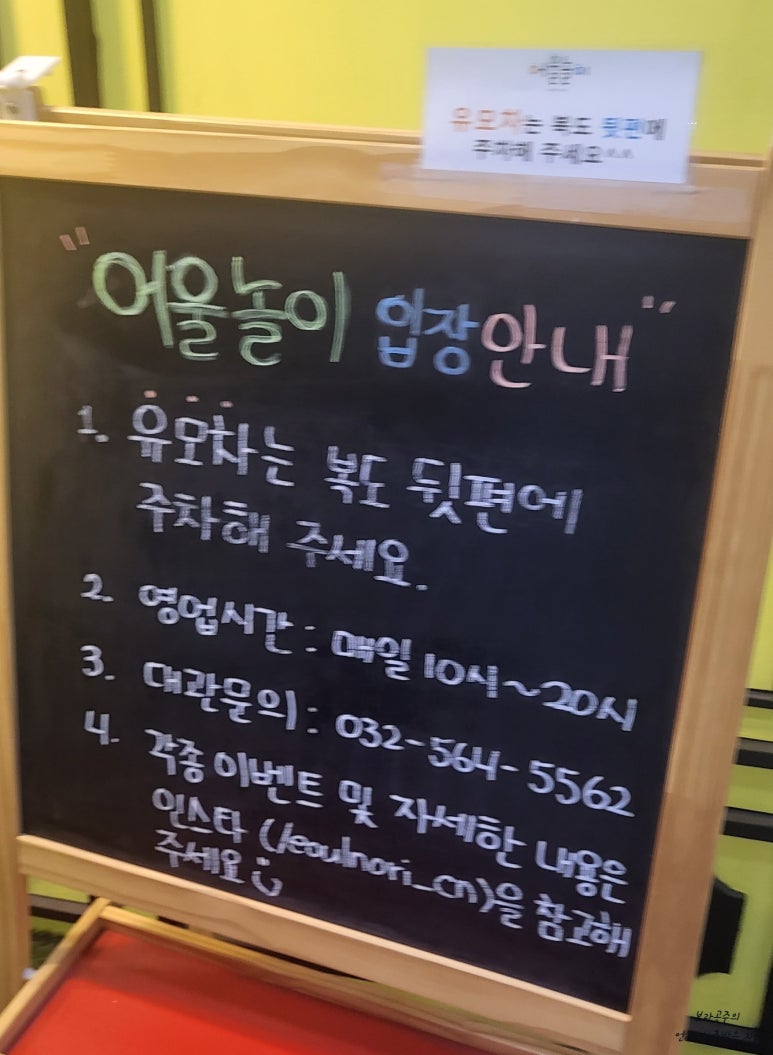 유모차는 복도 뒷편에
주차해 주세요^^
"어울놀이 입장안내"
1. 유모차는 복도 뒷편에
주차해 주세요.
2. 영업시간 : 매일 10시~20시
3. 대관문의 : 032-564-5562
4. 각종 이벤트 및 자세한 내용은
인스타 (/eoulnori_cn)을 참고해
주세요
보라공주의